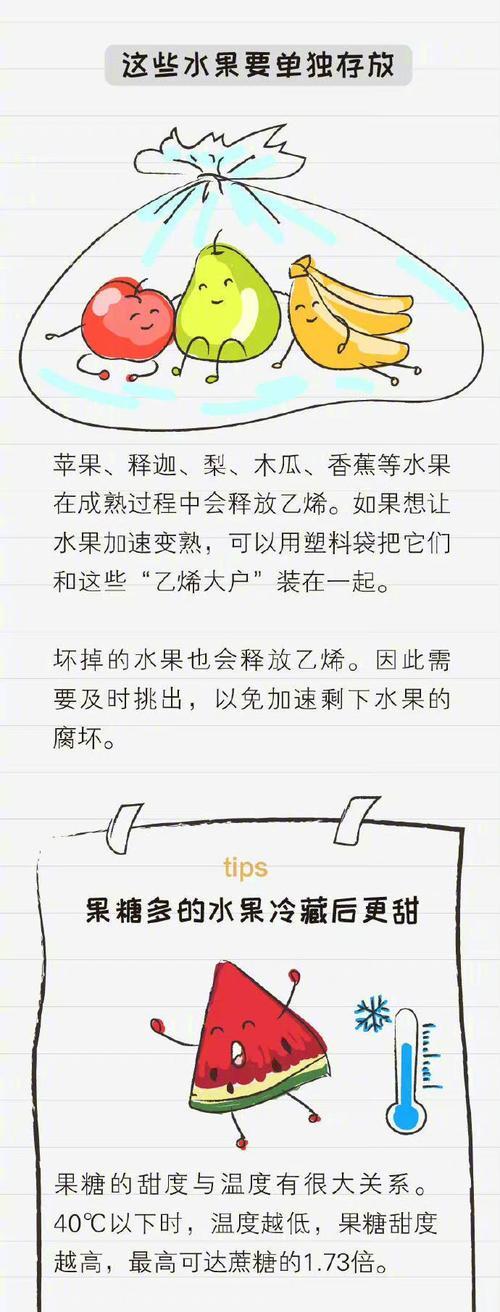 这些水果要单独存放
苹果、释迦、梨、木瓜、香蕉等水果
在成熟过程中会释放乙烯。如果想让
水果加速变熟，可以用塑料袋把它们
和这些“乙烯大户”装在一起。
坏掉的水果也会释放乙烯。因此需
要及时挑出，以免加速剩下水果的
腐坏。
tips
果糖多的水果冷藏后更甜
果糖的甜度与温度有很大关系。
40℃以下时，温度越低，果糖甜度
越高，最高可达蔗糖的1.73倍。